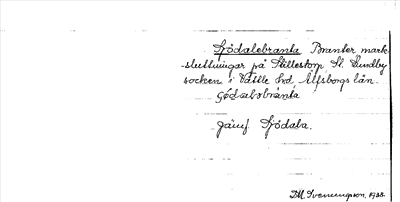 Sjödalsbranta Branter mark
-sluttningar på Stillestorp St. Lundby
socken i Vättle hrd Älfsborgs län.
Gödsabobranta
Jämf Sjödala.
D.M. Svenungson. 1938.